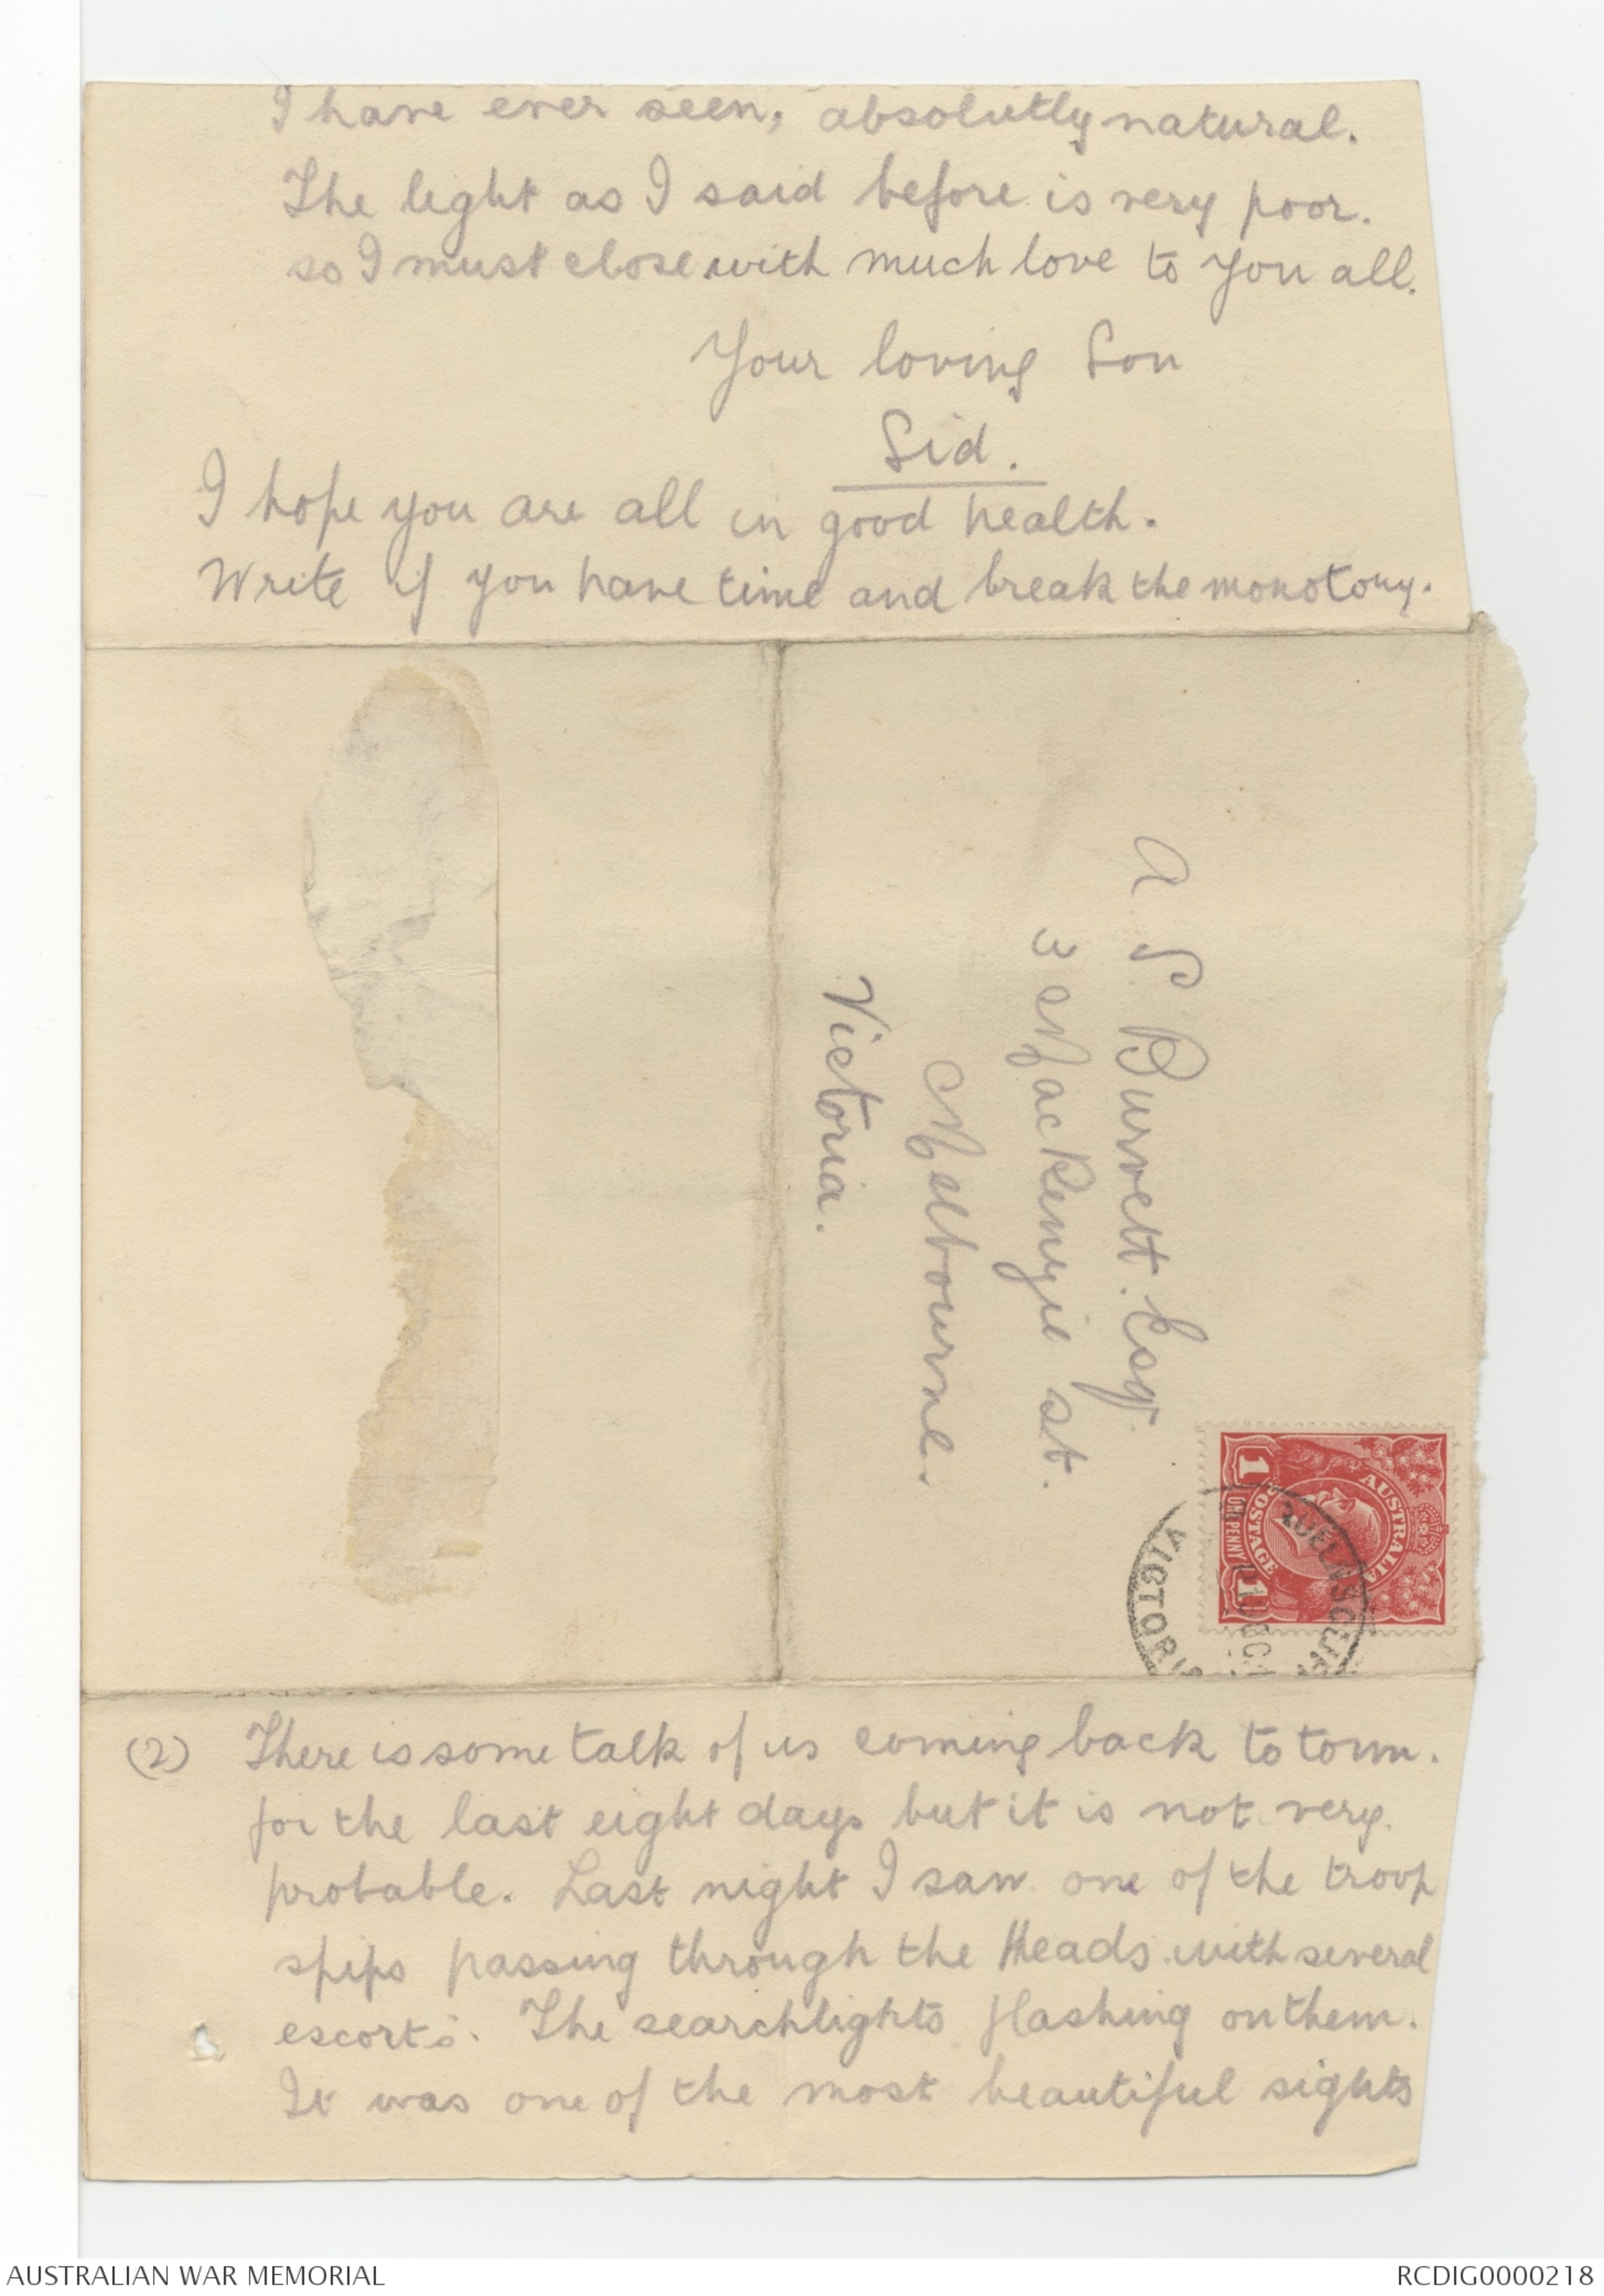 I have ever seen, absolutly natural.
The light as I said before is very poor.
so I must close with much love to you all.
Your loving Son
Sid.
I hope you are all in good health.
Write if you have time and break the monotony.
A S Burvett. Esqr.
3 Mackenzie st.
Melbourne.
Victoria.
AUSTRALIA
POSTAGE
1 1
ONE PENNY
VICTORIA
(2) There is some talk of us coming back to town.
for the last eight days but it is not very.
probable. Last night I saw one of the troop
spips passing through the Heads with several
escorts. The searchlights flashing on them.
It was one of the most beautiful sights
AUSTRALIAN WAR MEMORIAL
RCDIG0000218